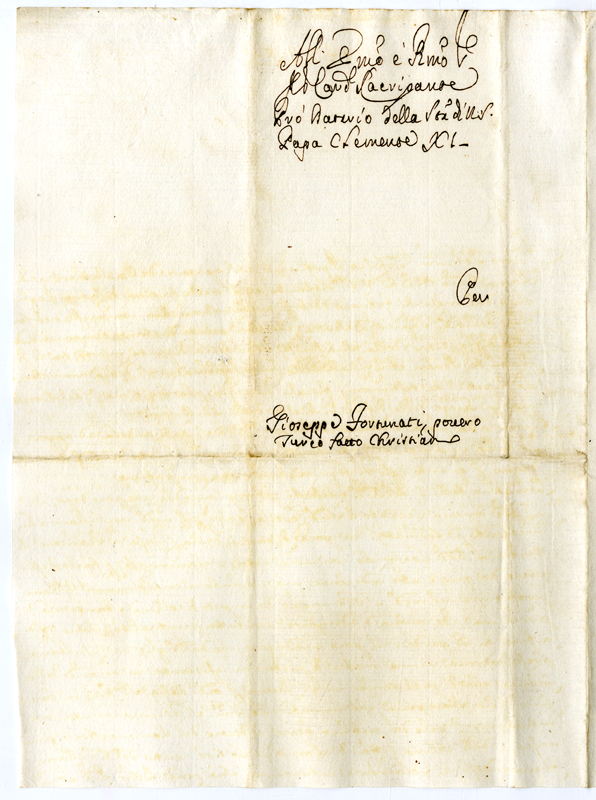 All Em̃o è Rm̃o Sig
Il Card Sacripante
Pró Datario della Stà di N.S.
Papa Clemente XI
Per
Gioseppe Fortunati, povero
Turco fatto Christiano